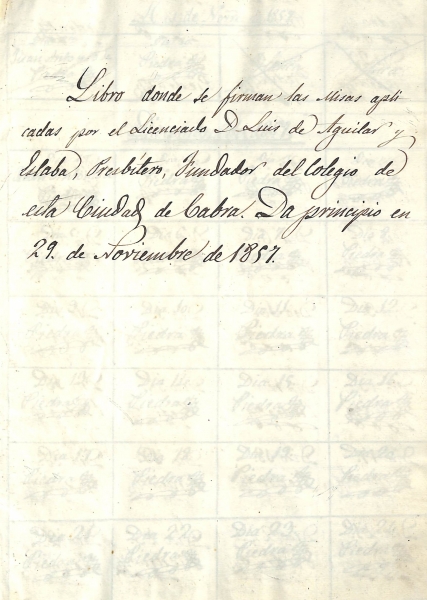 Libro donde se firman las Misas apli
cadas por el Licenciado D Luis de Aguilar y
Eslaba, Presbítero, Fundador del Colegio de
esta Ciudad de Cabra. Da principio en
29. de Noviembre de 1857.